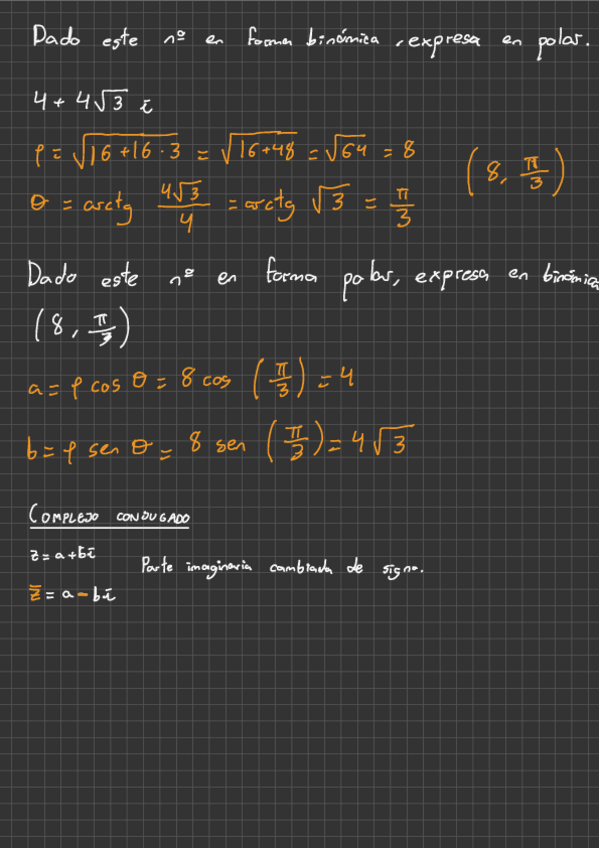 Dado este nº en forma binómica, expresa en polar.
4 + 4√3 i
ρ = √(16 + 16 · 3) = √(16+48) = √64 = 8
(8, π/3)
θ = arctg 4√3/4 = arctg √3 = π/3
Dado este nº en forma polar, expresa en binómica
(8, π/3)
a = ρ cos θ = 8 cos (π/3) = 4
b = ρ sen θ = 8 sen (π/3) = 4√3
COMPLEJO CONJUGADO
z = a + bi
Parte imaginaria cambiada de signo.
z̄ = a - bi